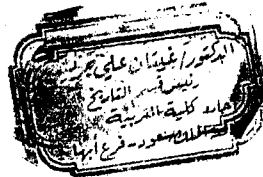 الدكتور/ غيثان علي جريس
رئيس قسم التاريخ
كلية التربية
الملك سعود - فرع أبها